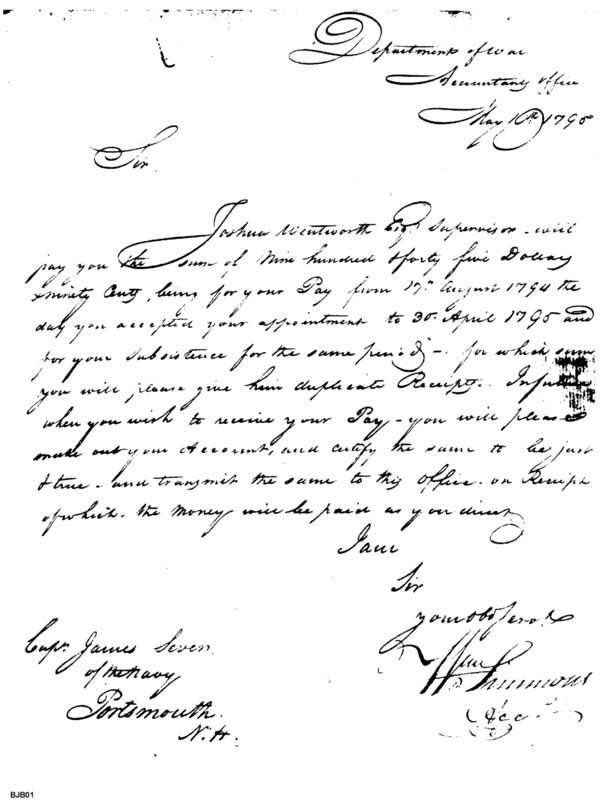 Department of War
Accountants Office
May 16th 1795
Sir
Joshua Wentworth Esqr. Supervisor - will
pay you the sum of Nine hundred & forty five Dollars
& ninety Cents, being for your Pay from 17th August 1794 the
day you accepted your appointment to 30th April 1795 and
for your Subsistence for the same period - for which sum
you will please give him duplicate Receipts. In future
when you wish to receive your Pay - you will please
make out your Account, and certify the same to be just
& true - and transmit the same to this Office - on Receipt
of which - the Money will be paid as you direct
I am
Sir
your obd Servt
Wm Simmons
Acct
Capt. James Sever
of the Navy
Portsmouth
N.H.
BJB01